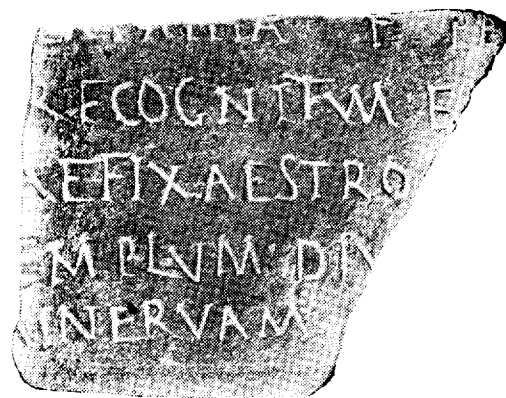 RECOGNITVM E
AEFIXAESTRO
EMPLVM DIV
MINERVAM